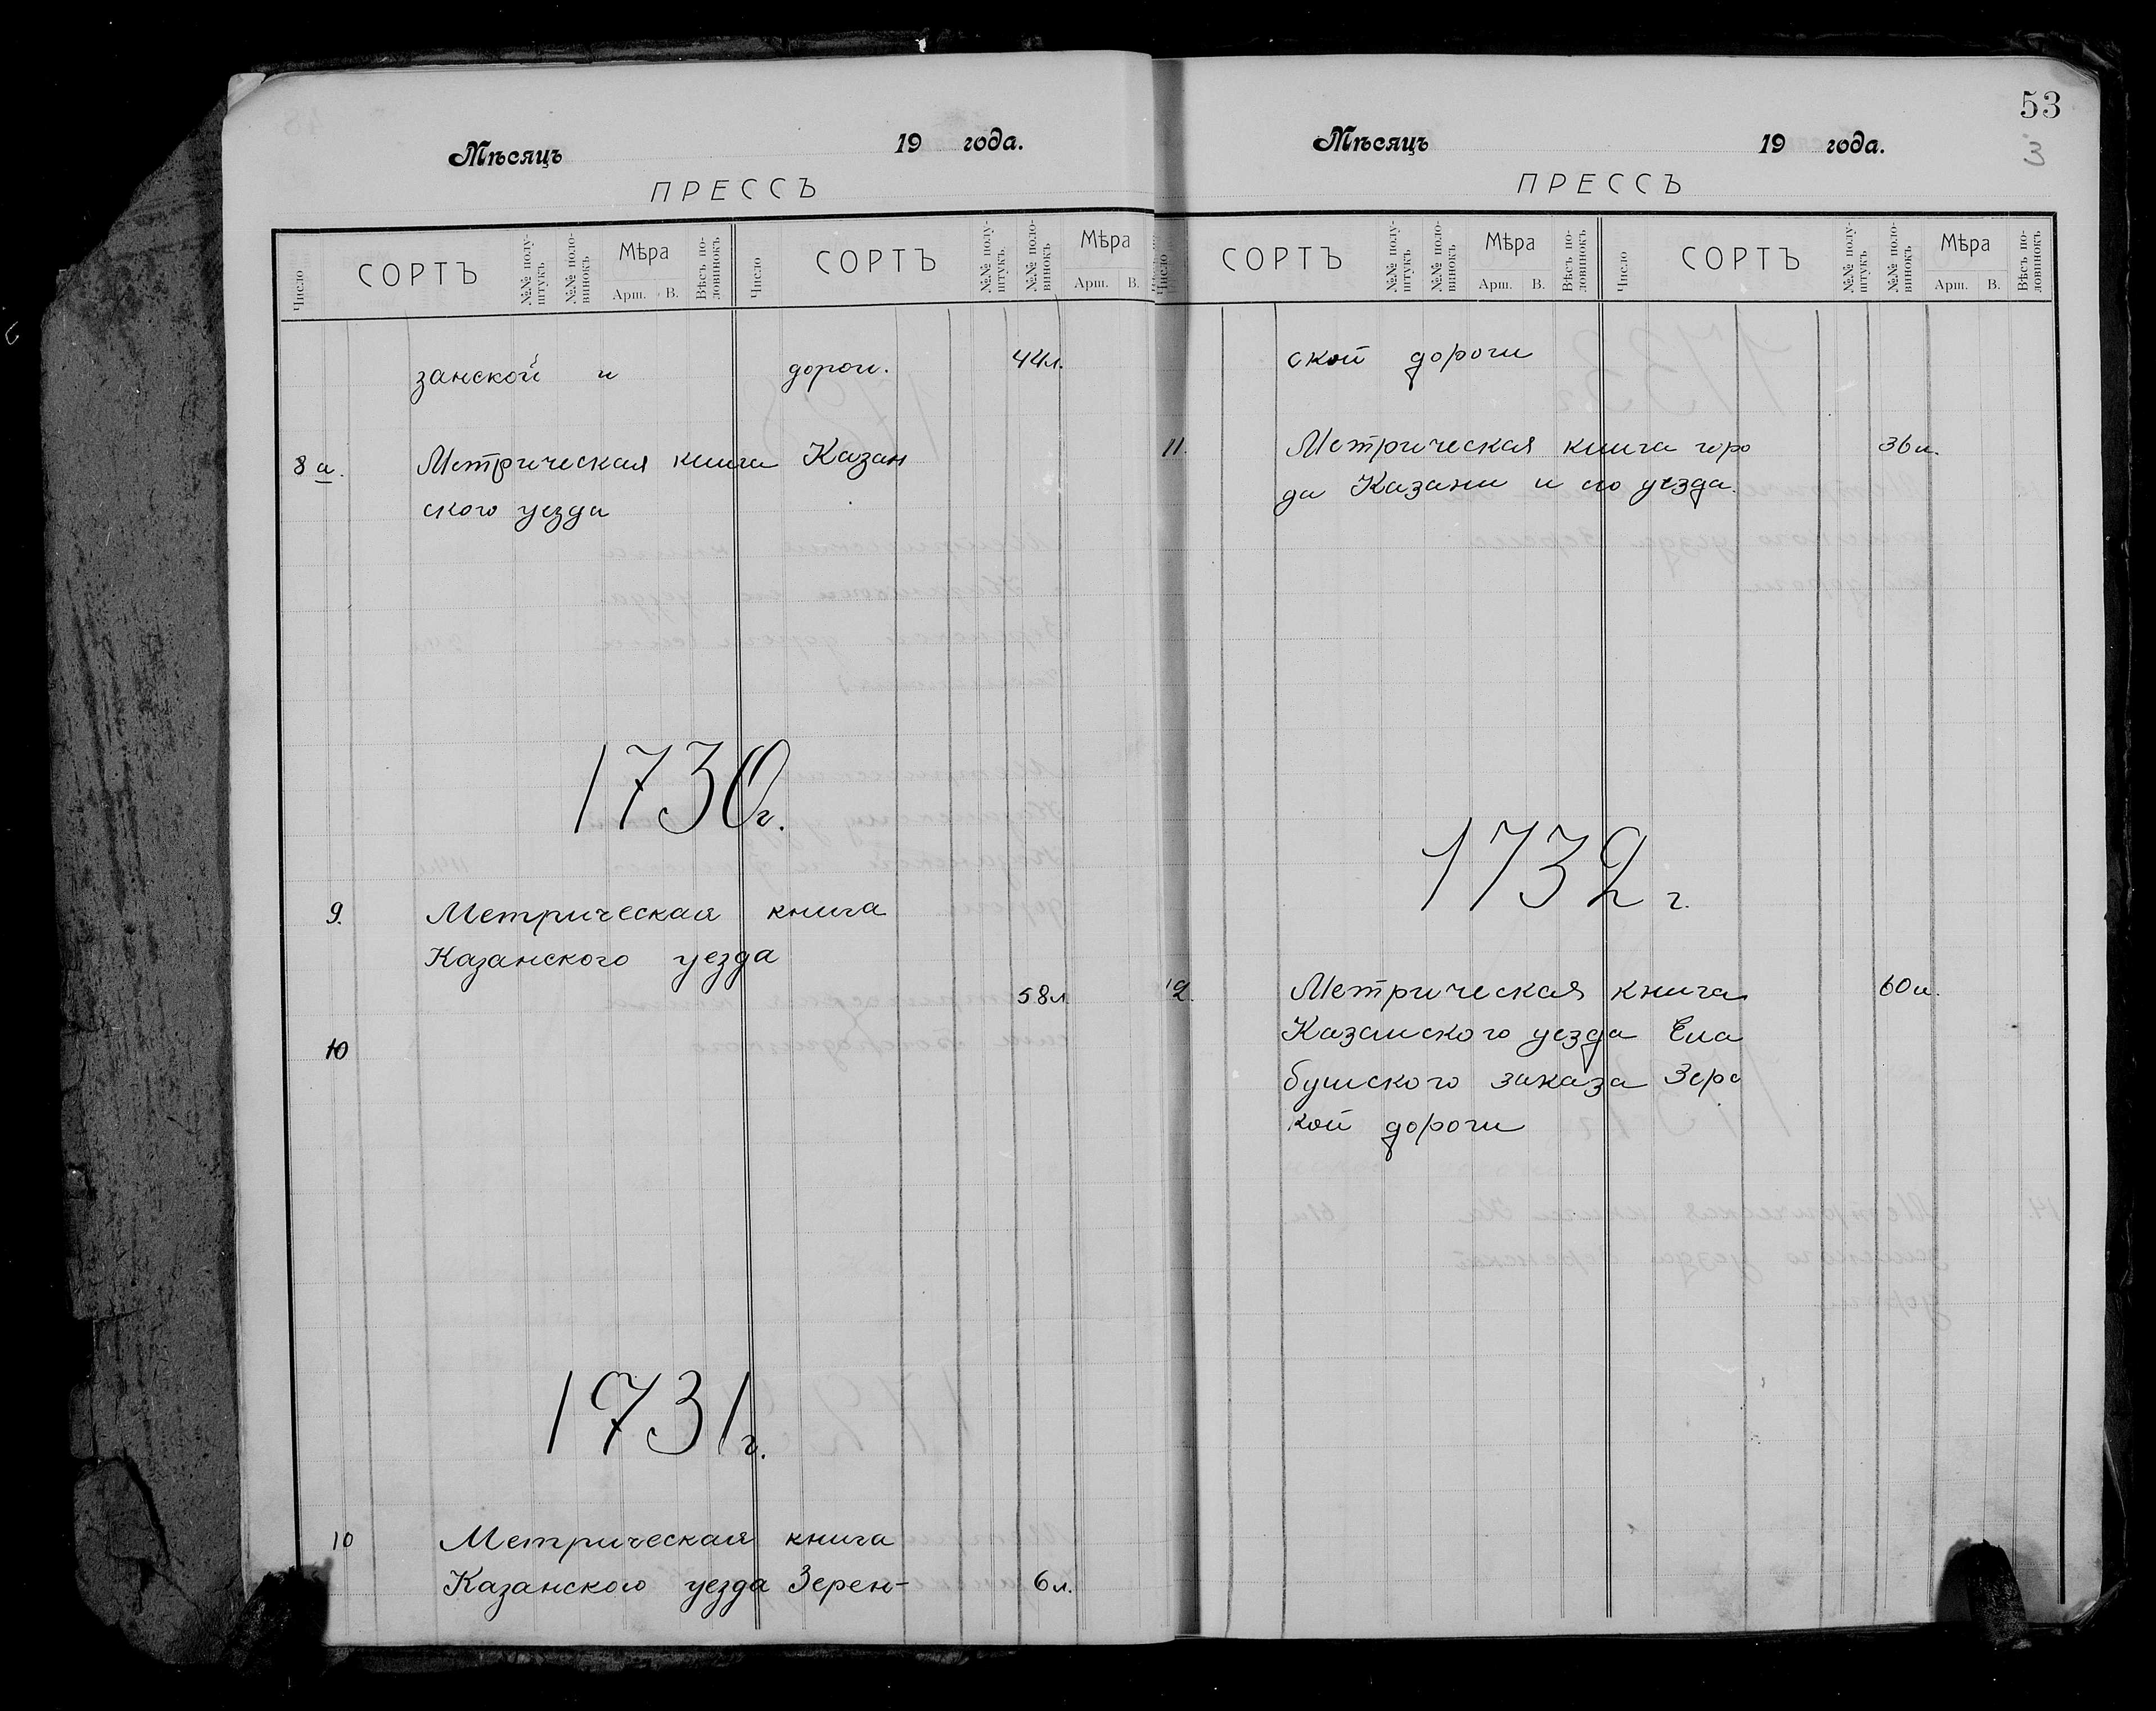 Мѣсяцъ 19 года.
ПРЕССЪ
Число СОРТЪ №№ полу-штукъ №№ поло-винокъ Мѣра Арш. В. Вѣсъ по-ловинокъ Число СОРТЪ №№ полу-штукъ №№ поло-винокъ Мѣра Арш. В.
занской и дороги. 44л.
8а. Метрическая книга Казан
ского уезда
1730г.
9. Метрическая книга
Казанского уезда
58л.
10
1731г.
10 Метрическая книга
Казанского уезда Зерен- 6л.
53
3
Мѣсяцъ 19 года.
ПРЕССЪ
Число СОРТЪ №№ полу-штукъ №№ поло-винокъ Мѣра Арш. В. Вѣсъ по-ловинокъ Число СОРТЪ №№ полу-штукъ №№ поло-винокъ Мѣра Арш. В. Вѣсъ по-ловинокъ
ской дороги
11. Метрическая книга горо 36л.
да Казани и его уезда.
1732г.
12. Метрическая книга 60л.
Казанского уезда Ела
бушского заказа Зерс
кой дороги